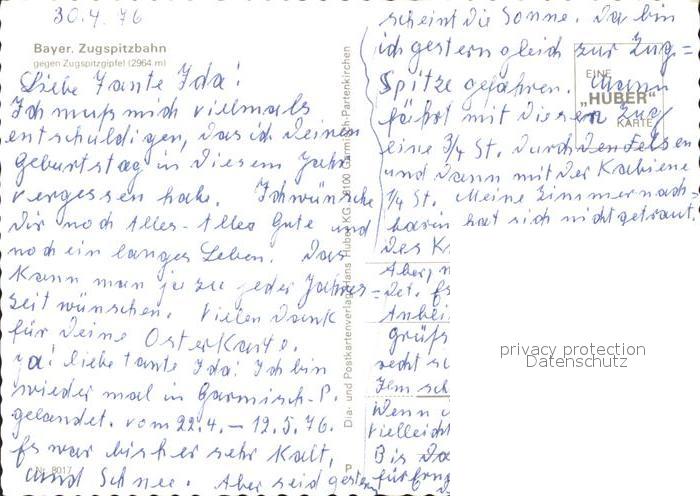 30.4.76
Bayer. Zugspitzbahn
gegen Zugspitzgipfel (2964 m)
Liebe Tante Ida!
Ich muß mich vielmals
entschuldigen, das ich Deinen
Geburtstag in diesem Jahr
vergessen habe. Ich wünsche
Dir noch Alles-Alles Gute und
noch ein langes Leben. Das
kann man ja zu jeder Jahres=
zeit wünschen. Vielen Dank
für Deine Osterkarte.
Ja! liebe Tante Ida! Ich bin
wieder mal in Garmisch-P.
gelandet. vom 22.4. – 12.5.76.
Es war bisher sehr kalt,
und Schnee. Aber seid gestern
Nr. 8017
Dia- und Postkartenverlag Hans Huber KG, 8100 Garmisch-Partenkirchen
scheint die Sonne. Da bin
ich gestern gleich zur Zug=
Spitze gefahren. Mann
fährt mit diesen Zug
eine 3/4 St. durch den Felsen
und dann mit der Kabiene
1/4 St. Meine Zimmernach=
barin hat sich nicht getraut.
EINE
„HUBER"
KARTE
des K
Aber,
det. Es
Anbei
grüß
recht
Wenn
vielleicht
Bis
für
privacy protection
Datenschutz